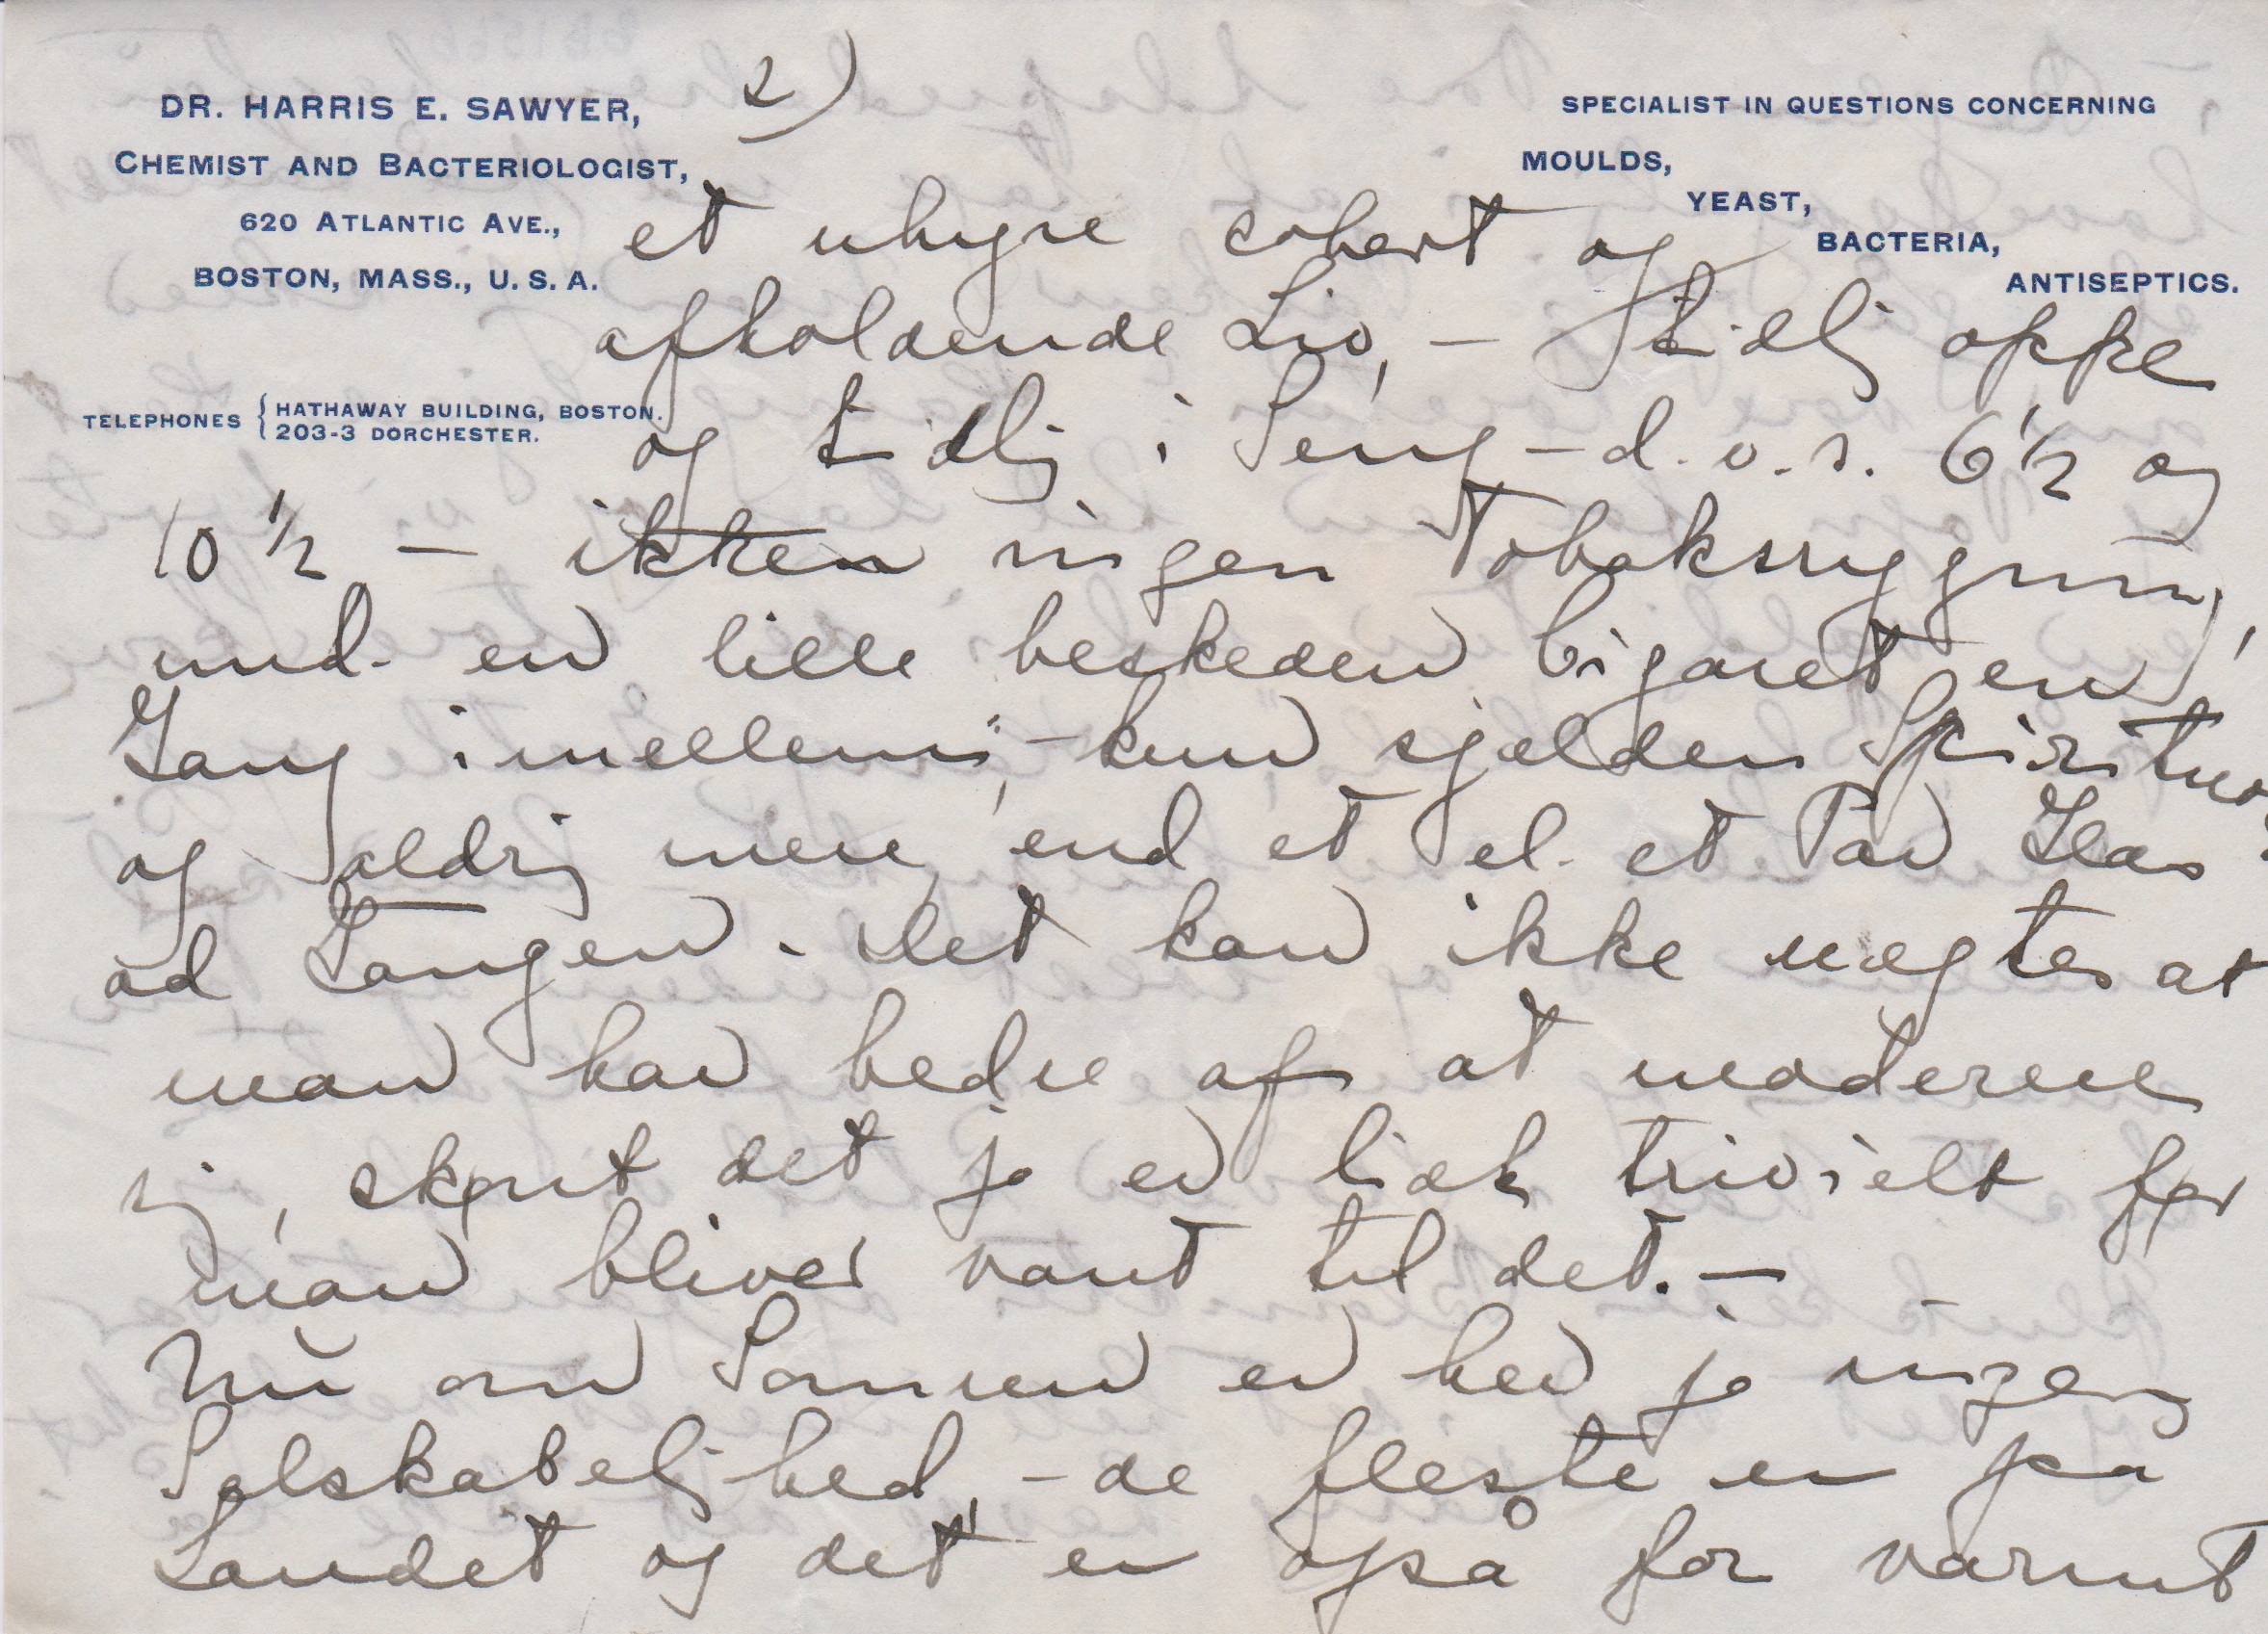 2)
DR. HARRIS E. SAWYER,
CHEMIST AND BACTERIOLOGIST,
620 ATLANTIC AVE.,
BOSTON, MASS., U. S. A.
TELEPHONES { HATHAWAY BUILDING, BOSTON.
203-3 DORCHESTER.
SPECIALIST IN QUESTIONS CONCERNING
MOULDS,
YEAST,
BACTERIA,
ANTISEPTICS.
et uhyre sobert og
afholdende Liv, – tidlig oppe
og tidlig i Seng – d. v. s. 6½ og
10½ – ikken ingen Tobaksrygning,
und. en lille beskeden Cigaret "en
Gang imellem", – kun sjælden Spirituos
og aldrig mere end et el. et Par Glas
ad Gangen. Det kan ikke nægtes at
man har bedre af at moderere
sig, skønt det ja er lidt trivielt før
man bliver vant til det. –
Nu om Somren er her jo ingen
Selskabelighed, – de fleste er på
Landet og det er også for varmt